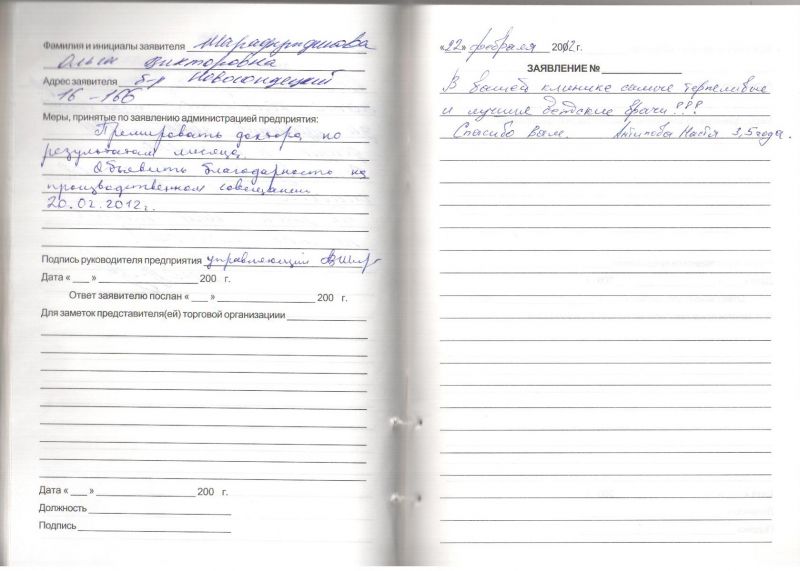 Фамилия и инициалы заявителя Шарафутдинова
Ольга Викторовна
Адрес заявителя б-р Новосондецкий
16-166
Меры, принятые по заявлению администрацией предприятия:
Премировать доктора по
результатам месяца.
Объявить благодарность на
производственном совещании
20.02.2012г.
Подпись руководителя предприятия управляющий
Дата « ___ » ___ 200 г.
Ответ заявителю послан « ___ » ___ 200 г.
Для заметок представителя(ей) торговой организациии
Дата « ___ » ___ 200 г.
Должность
Подпись
«22» февраля 2012 г.
ЗАЯВЛЕНИЕ №
В вашей клинике самые терпеливые
и лучшие детские врачи!!!
Спасибо вам. Антипова Настя 3,5 года.